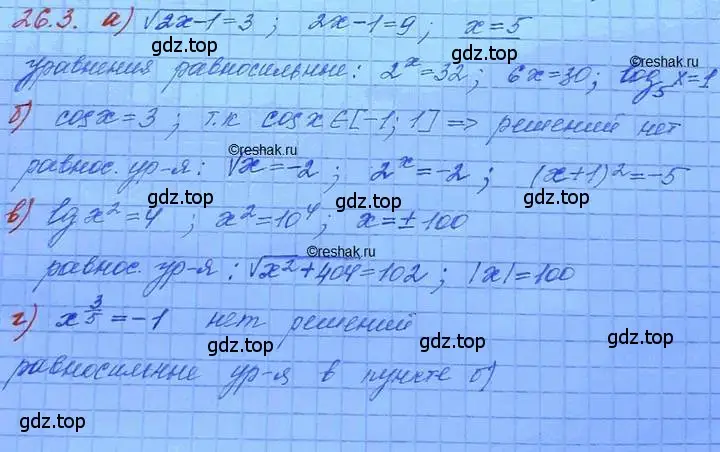 26.3. а) √2x-1=3 ; 2x-1=9 ; x=5
gdz.top gdz.top gdz.top
уравнения равносильные: 2^x=32; 6x=30; log₅x=1
©reshak.ru
б) cosx=3 ; т.к cosx∈[-1; 1] => решений нет
равнос. ур-я: √x=-2 ; 2^x=-2 ; (x+1)²=-5
gdz.top gdz.top gdz.top
в) lg x²=4 ; x²=10⁴ ; x=±100
©reshak.ru
равнос. ур-я: √x²+404=102 ; |x|=100
г) x^3/5=-1 нет решений
gdz.top gdz.top gdz.top
равносильные ур-я в пункте б)
gdz.top gdz.top